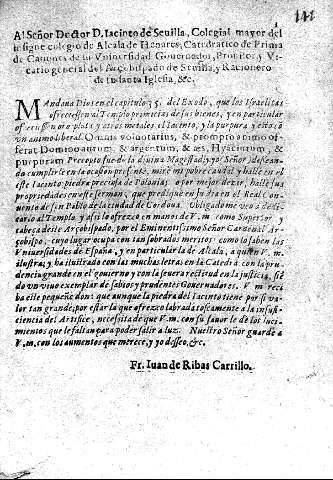 141
Al Señor Doctor D. Iacinto de Seuilla, Colegial mayor del
insigne colegio de Alcala de Henares, Catedratico de Prima
de Canones de su Vniuersidad, Prouisor y Vi-
cario general del Arçobispado de Seuilla, y Racionero
de su santa Iglesia, &c.
MAndaua Dios en el capitulo 35. del Exodo, que los Israelitas
ofreciessen al Templo primicias de sus bienes, y en particular
ofrecian oro plata y otros metales, el Iacinto, y la purpura y esto cõ
vn animo liberal. Omnis voluntarius, & prompto animo of-
ferat Domino aurum, & argentum, & æs, Hyacintum, &
purpuram Precepto fue de la diuina Magestad; y yo Señor, desseando
cumplirle en la ocasion presente, mirè mi pobre caudal y hallè en el
este Iacinto piedra preciosa de Polonia, o por mejor dezir, hallè sus
propriedades en este sermon, que prediquè en su dia en el Real Con-
uento de san Pablo de la ciudad de Cordoua. Obligado me veo a dedi-
carlo al Templo, y assi lo ofrezco en manos de V.m. como Superior y
cabeça deste Arçobispado, por el Eminentissimo Señor Cardenal Ar-
çobispo, cuyo lugar ocupa con tan sobrados meritos como lo saben las
Vniuersidades de España, y en particular la de Alcala, a quien V.m.
ilustra, y ha ilustrado con las muchas letras en la Catedra con la pru-
dencia grande en el gouierno y con la seuera rectitud en la justicia, siẽ
do vn viuo exemplar de sabios y prudentes Gouernadores. V m reci
ba este pequeño don: que aunque la piedra del Iacinto tiene por si va-
lor tan grande; por estar la que ofrezco labrada toscamente a la insufi-
ciencia del Artifice, necesita de que V.m. con su fauor le dè los luci-
mientos que le faltan para poder salir a luz. Nuestro Señor guarde a
V.m. con los aumentos que merece, y yo desseo, &c.
Fr. Iuan de Ribas Carrillo.